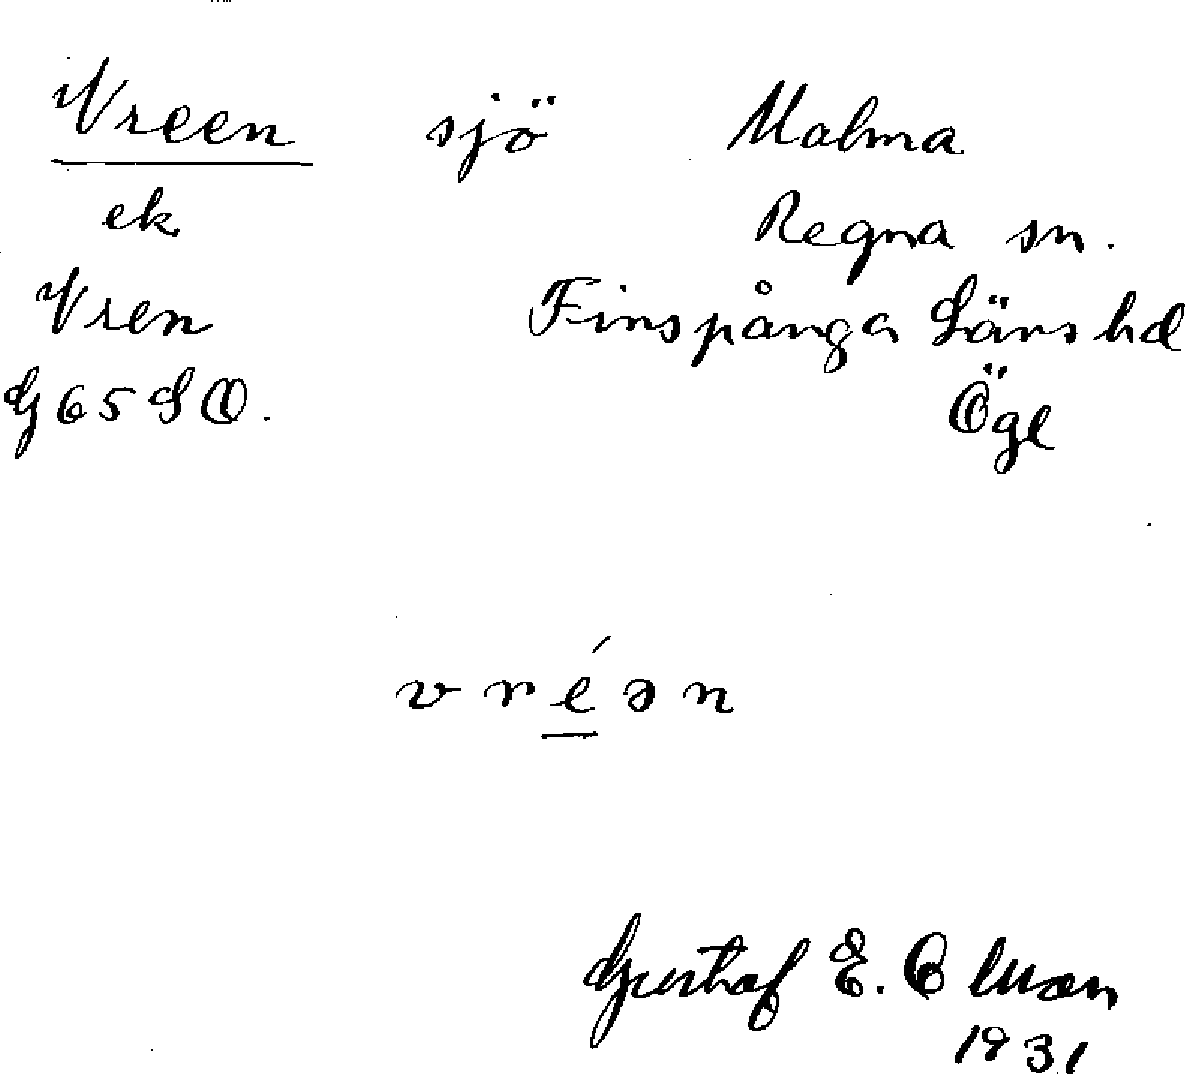 Vreen sjö Malma
ek Regna sn.
Vren Finspånga Läns hd
G65SO. Ögl
v r é ə n
Gustaf E.
1931